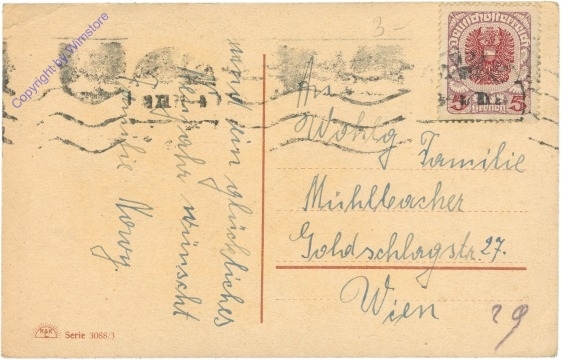 Copyright by Winstore
3-
Deutschösterreich
5 5
An
Wohlg Familie
Mühlbacher
Goldschlagstr. 27.
Wien
ein glückliches
Neujahr wünscht
Familie Nowy
Serie 3088/3
29